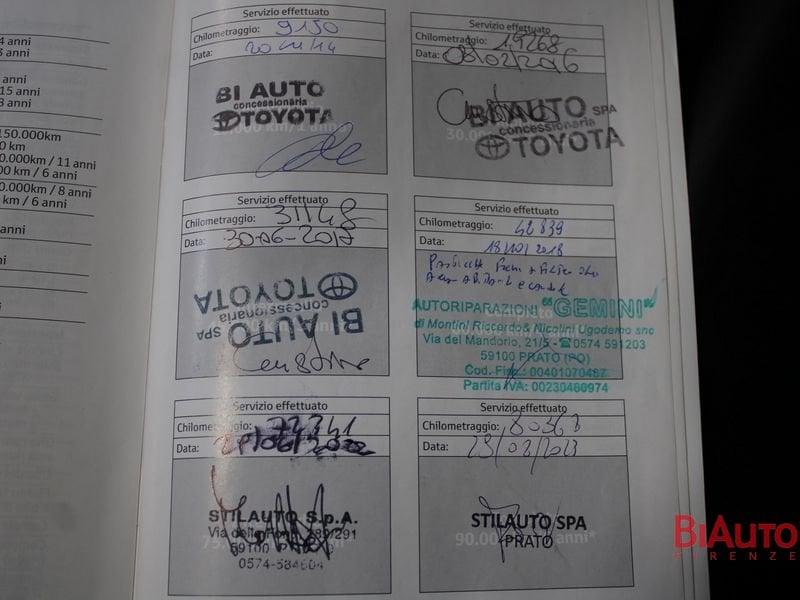 4 anni
3 anni
anni
15 anni
8 anni
150.000km
0 km
0.000km / 11 anni
00 km / 6 anni
0.000km / 8 anni
km / 6 anni
anni
Servizio effettuato
Chilometraggio: 9150
Data:
BI AUTO
concessionaria
TOYOTA
Servizio effettuato
Chilometraggio: 19268
Data: 08/02/2016
BI AUTO SPA
concessionaria
TOYOTA
30.000
Servizio effettuato
Chilometraggio: 31148
Data: 30-06-2017
BI AUTO SPA
concessionaria
TOYOTA
Servizio effettuato
Chilometraggio: 42839
Data: 18/10/2018
AUTORIPARAZIONI "GEMINI"
di Montini Riccardo & Nicolini Ugodemo snc
Via del Mandorlo, 21/5 - ☎ 0574 591203
59100 PRATO (PO)
Cod. Fisc.: 00401070487
Partita IVA: 00230460974
Servizio effettuato
Chilometraggio: 72341
Data:
STILAUTO S.p.A.
59100 PRATO
0574-584604
Servizio effettuato
Chilometraggio: 80368
Data:
STILAUTO SPA
PRATO
90.000
anni*
BIAUTO
FIRENZE